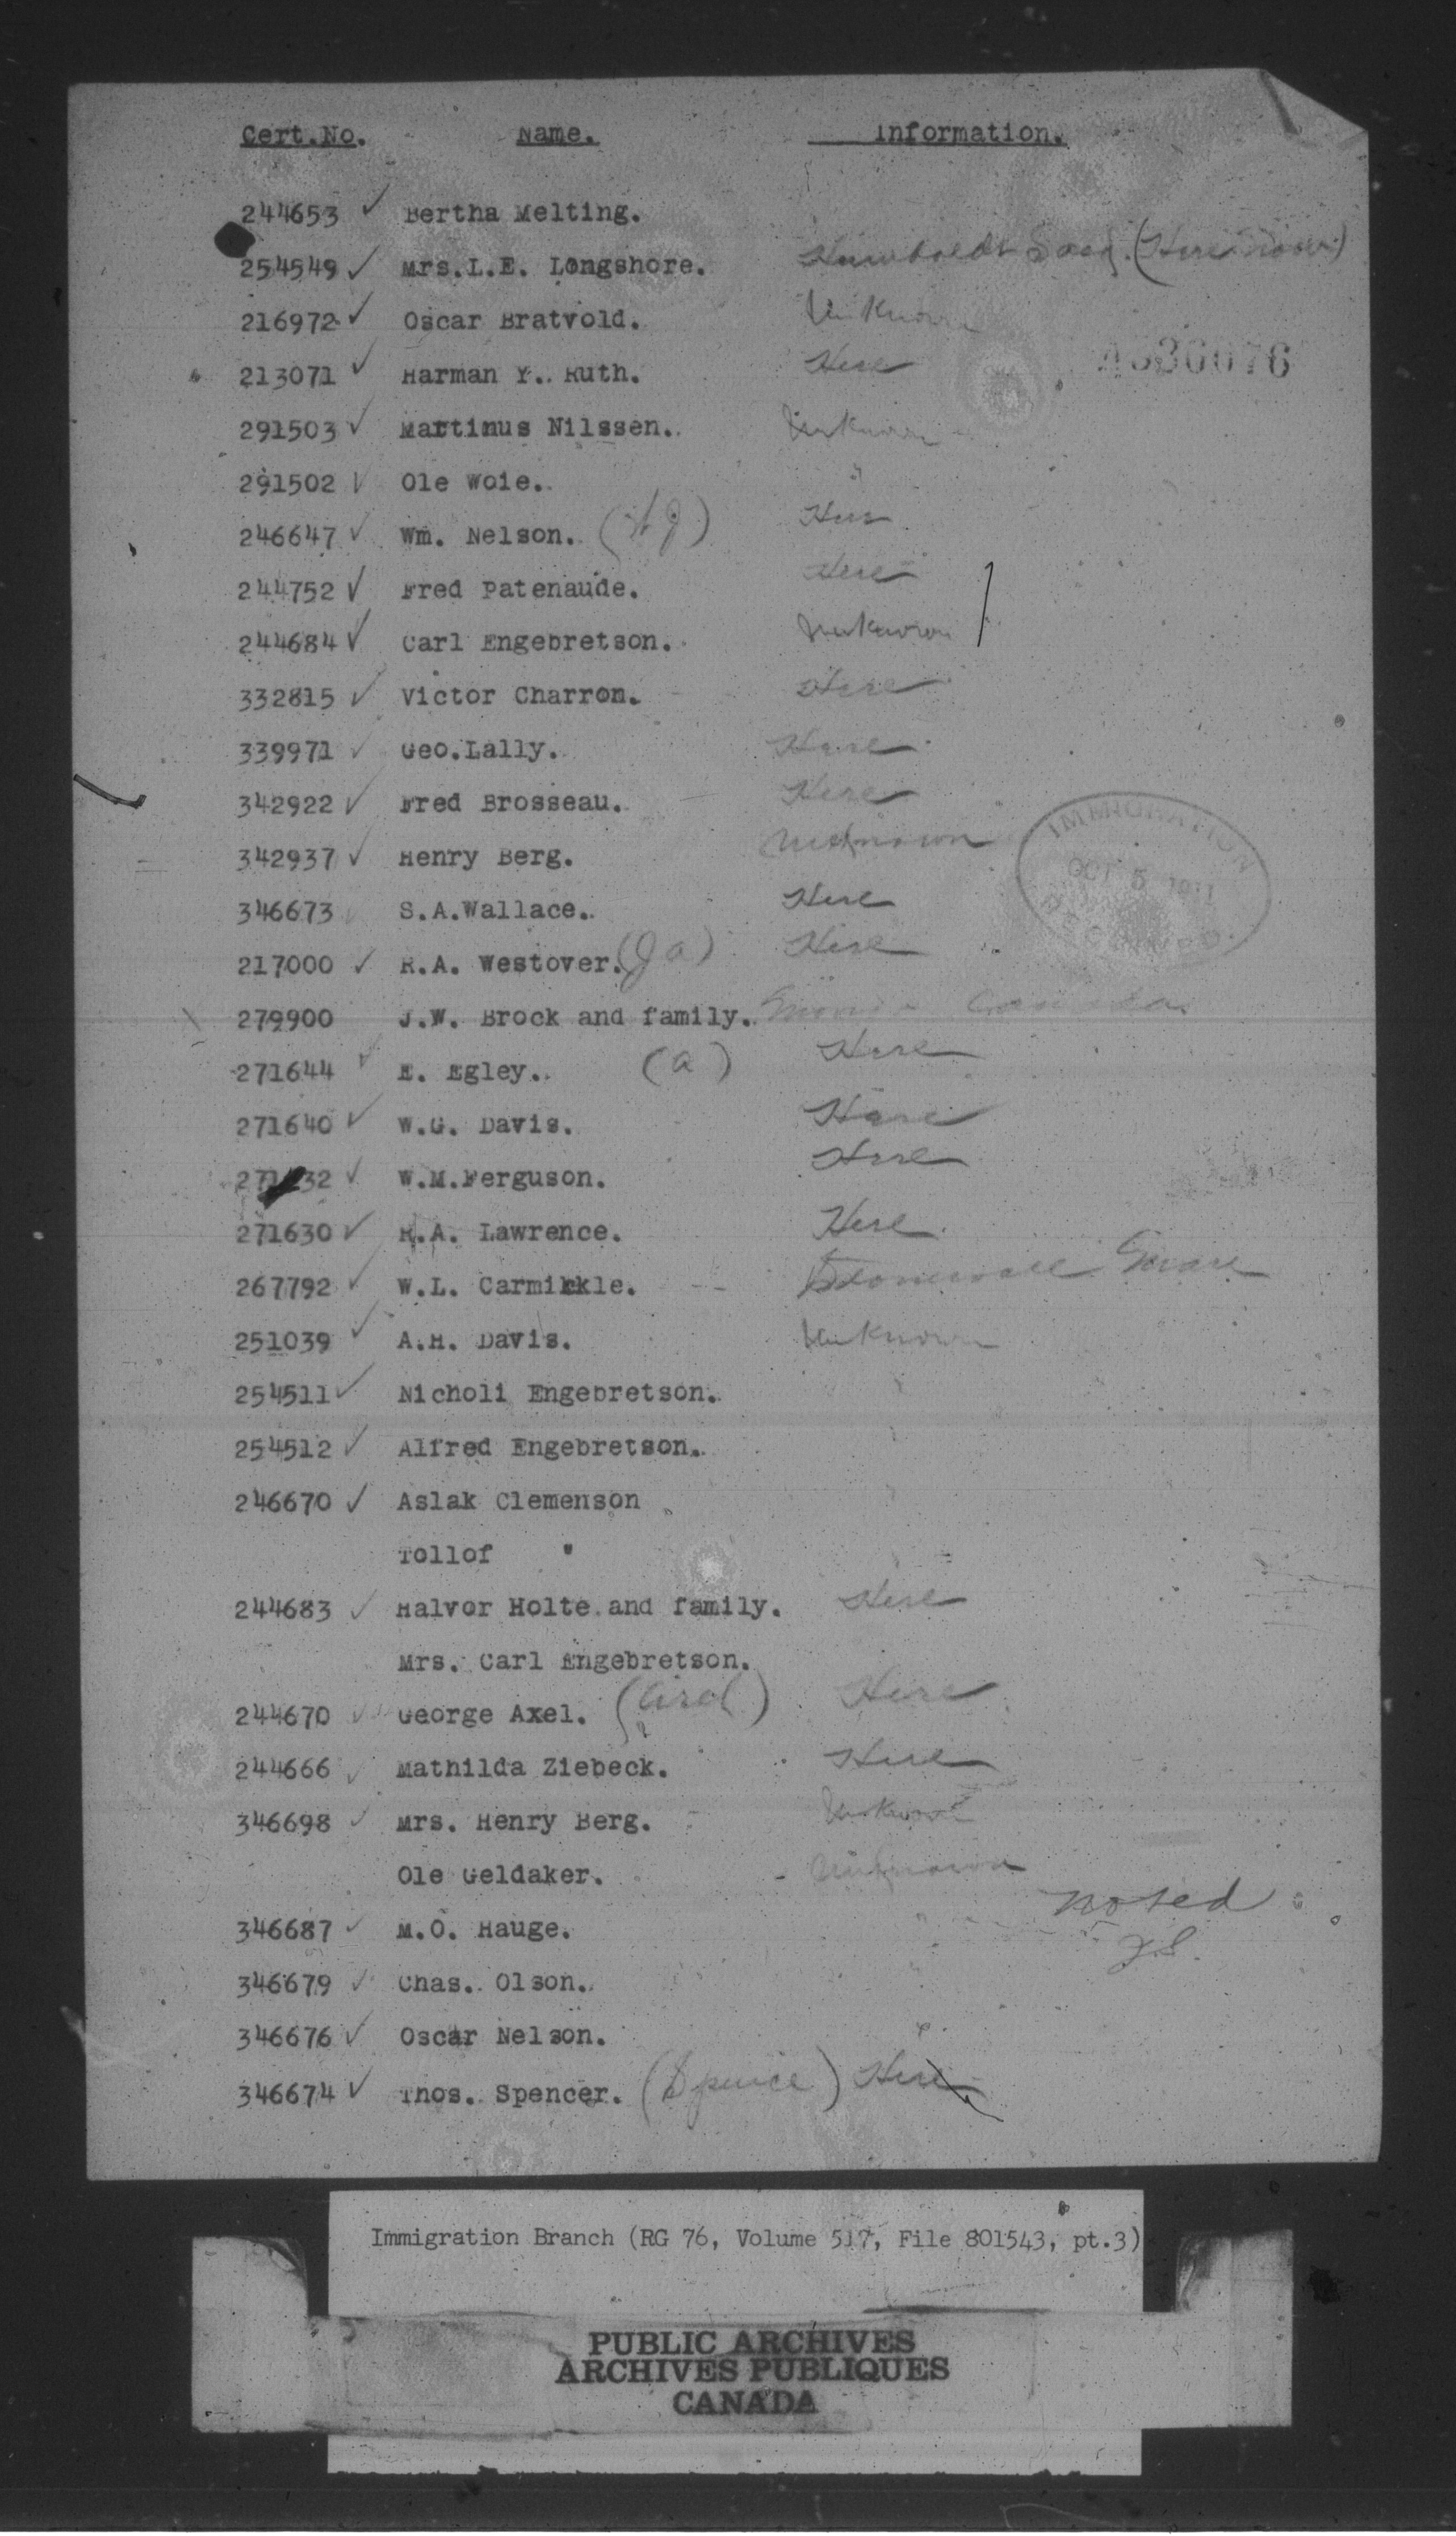 Cert.No. Name. Information.
244653 ✓ Bertha Melting.
254549 ✓ Mrs.L.E. Longshore. Humboldt Sask. (Here now)
216972 ✓ Oscar Bratvold. Unknown
213071 ✓ Harman Y. Ruth. Here
A836076
291503 ✓ Martinus Nilssen. Unknown
291502 ✓ Ole Woie. "
246647 ✓ Wm. Nelson. Here
244752 ✓ Fred Patenaude. Here
244684 ✓ Carl Engebretson. Unknown
332815 ✓ Victor Charron. Here
339971 ✓ Geo.Lally. Here
342922 ✓ Fred Brosseau. Here
342937 ✓ Henry Berg. Unknown
IMMIGRATION
OCT 5 1911
RECORDED.
346673 S.A.Wallace. Here
217000 ✓ R.A. Westover. Here
279900 J.W. Brock and family. Canada
271644 ✓ E. Egley. (a) Here
271640 ✓ W.G. Davis. Here
✓ W.M.Ferguson. Here
271630 ✓ R.A. Lawrence. Here
267792 ✓ W.L. Carmickle.
251039 ✓ A.H. Davis. Unknown
254511 ✓ Nicholi Engebretson.
254512 ✓ Alfred Engebretson.
246670 ✓ Aslak Clemenson
Tollof "
244683 ✓ Halvor Holte and family. Here
Mrs. Carl Engebretson.
244670 ✓ George Axel. Here
244666 ✓ Mathilda Ziebeck. Here
346698 ✓ Mrs. Henry Berg. Unknown
Ole Geldaker. Unknown
346687 ✓ M.O. Hauge. "
noted
J.S.
346679 ✓ Chas. Olson. "
346676 ✓ Oscar Nelson. "
346674 ✓ Thos. Spencer. (Spence) Here
Immigration Branch (RG 76, Volume 517, File 801543, pt.3)
PUBLIC ARCHIVES
ARCHIVES PUBLIQUES
CANADA